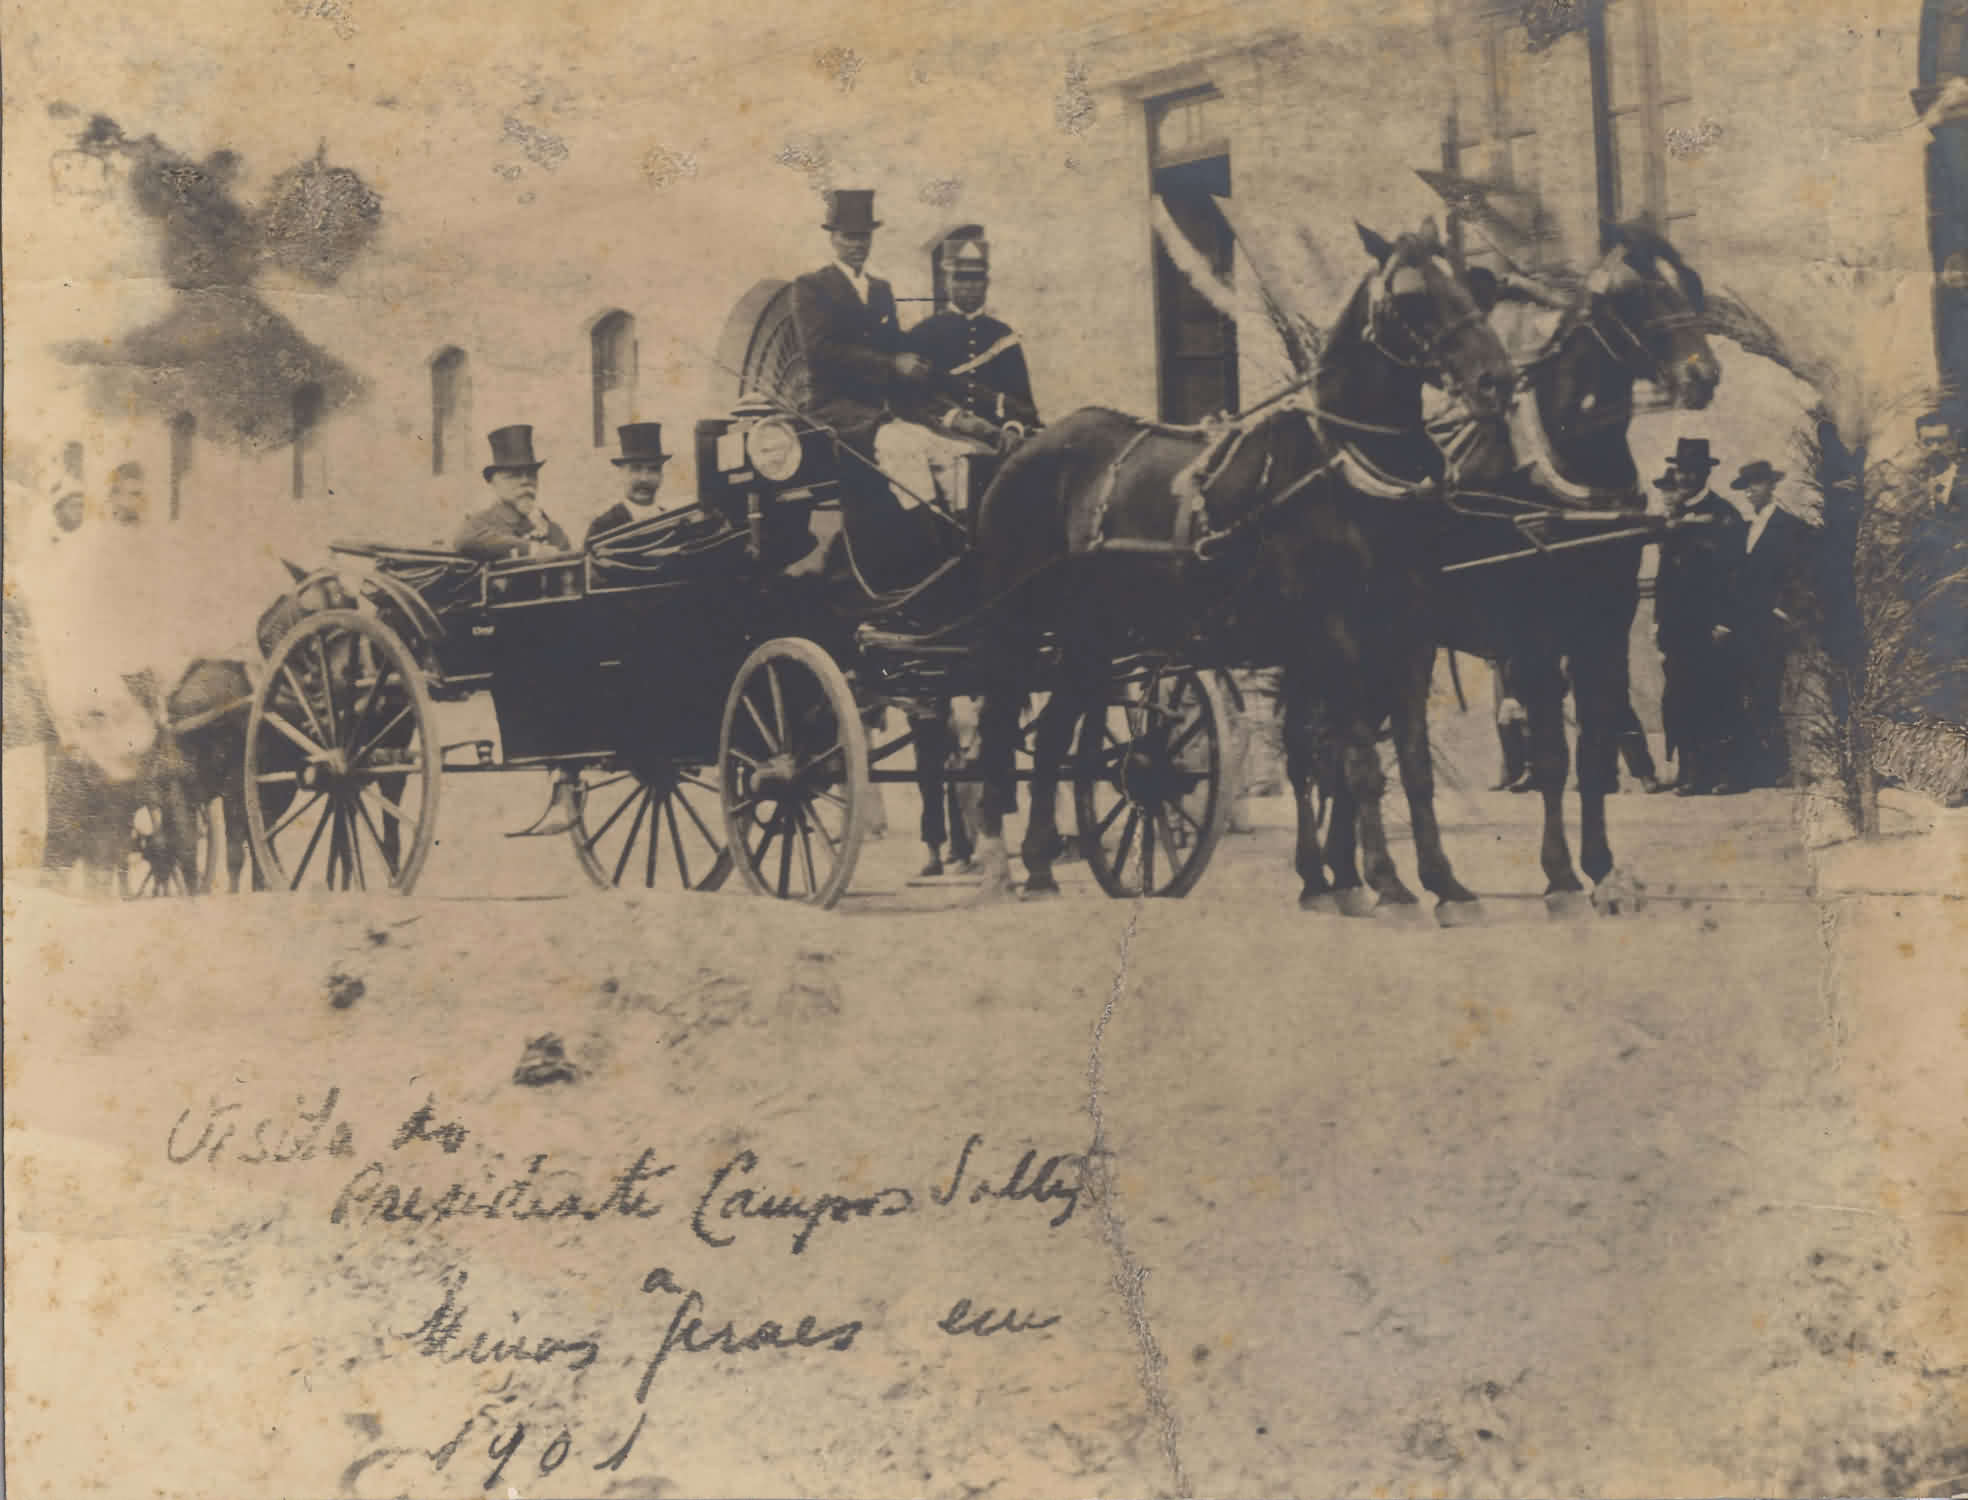 Visita do
Presidente Campos Salles
a
Minas Geraes em
1901